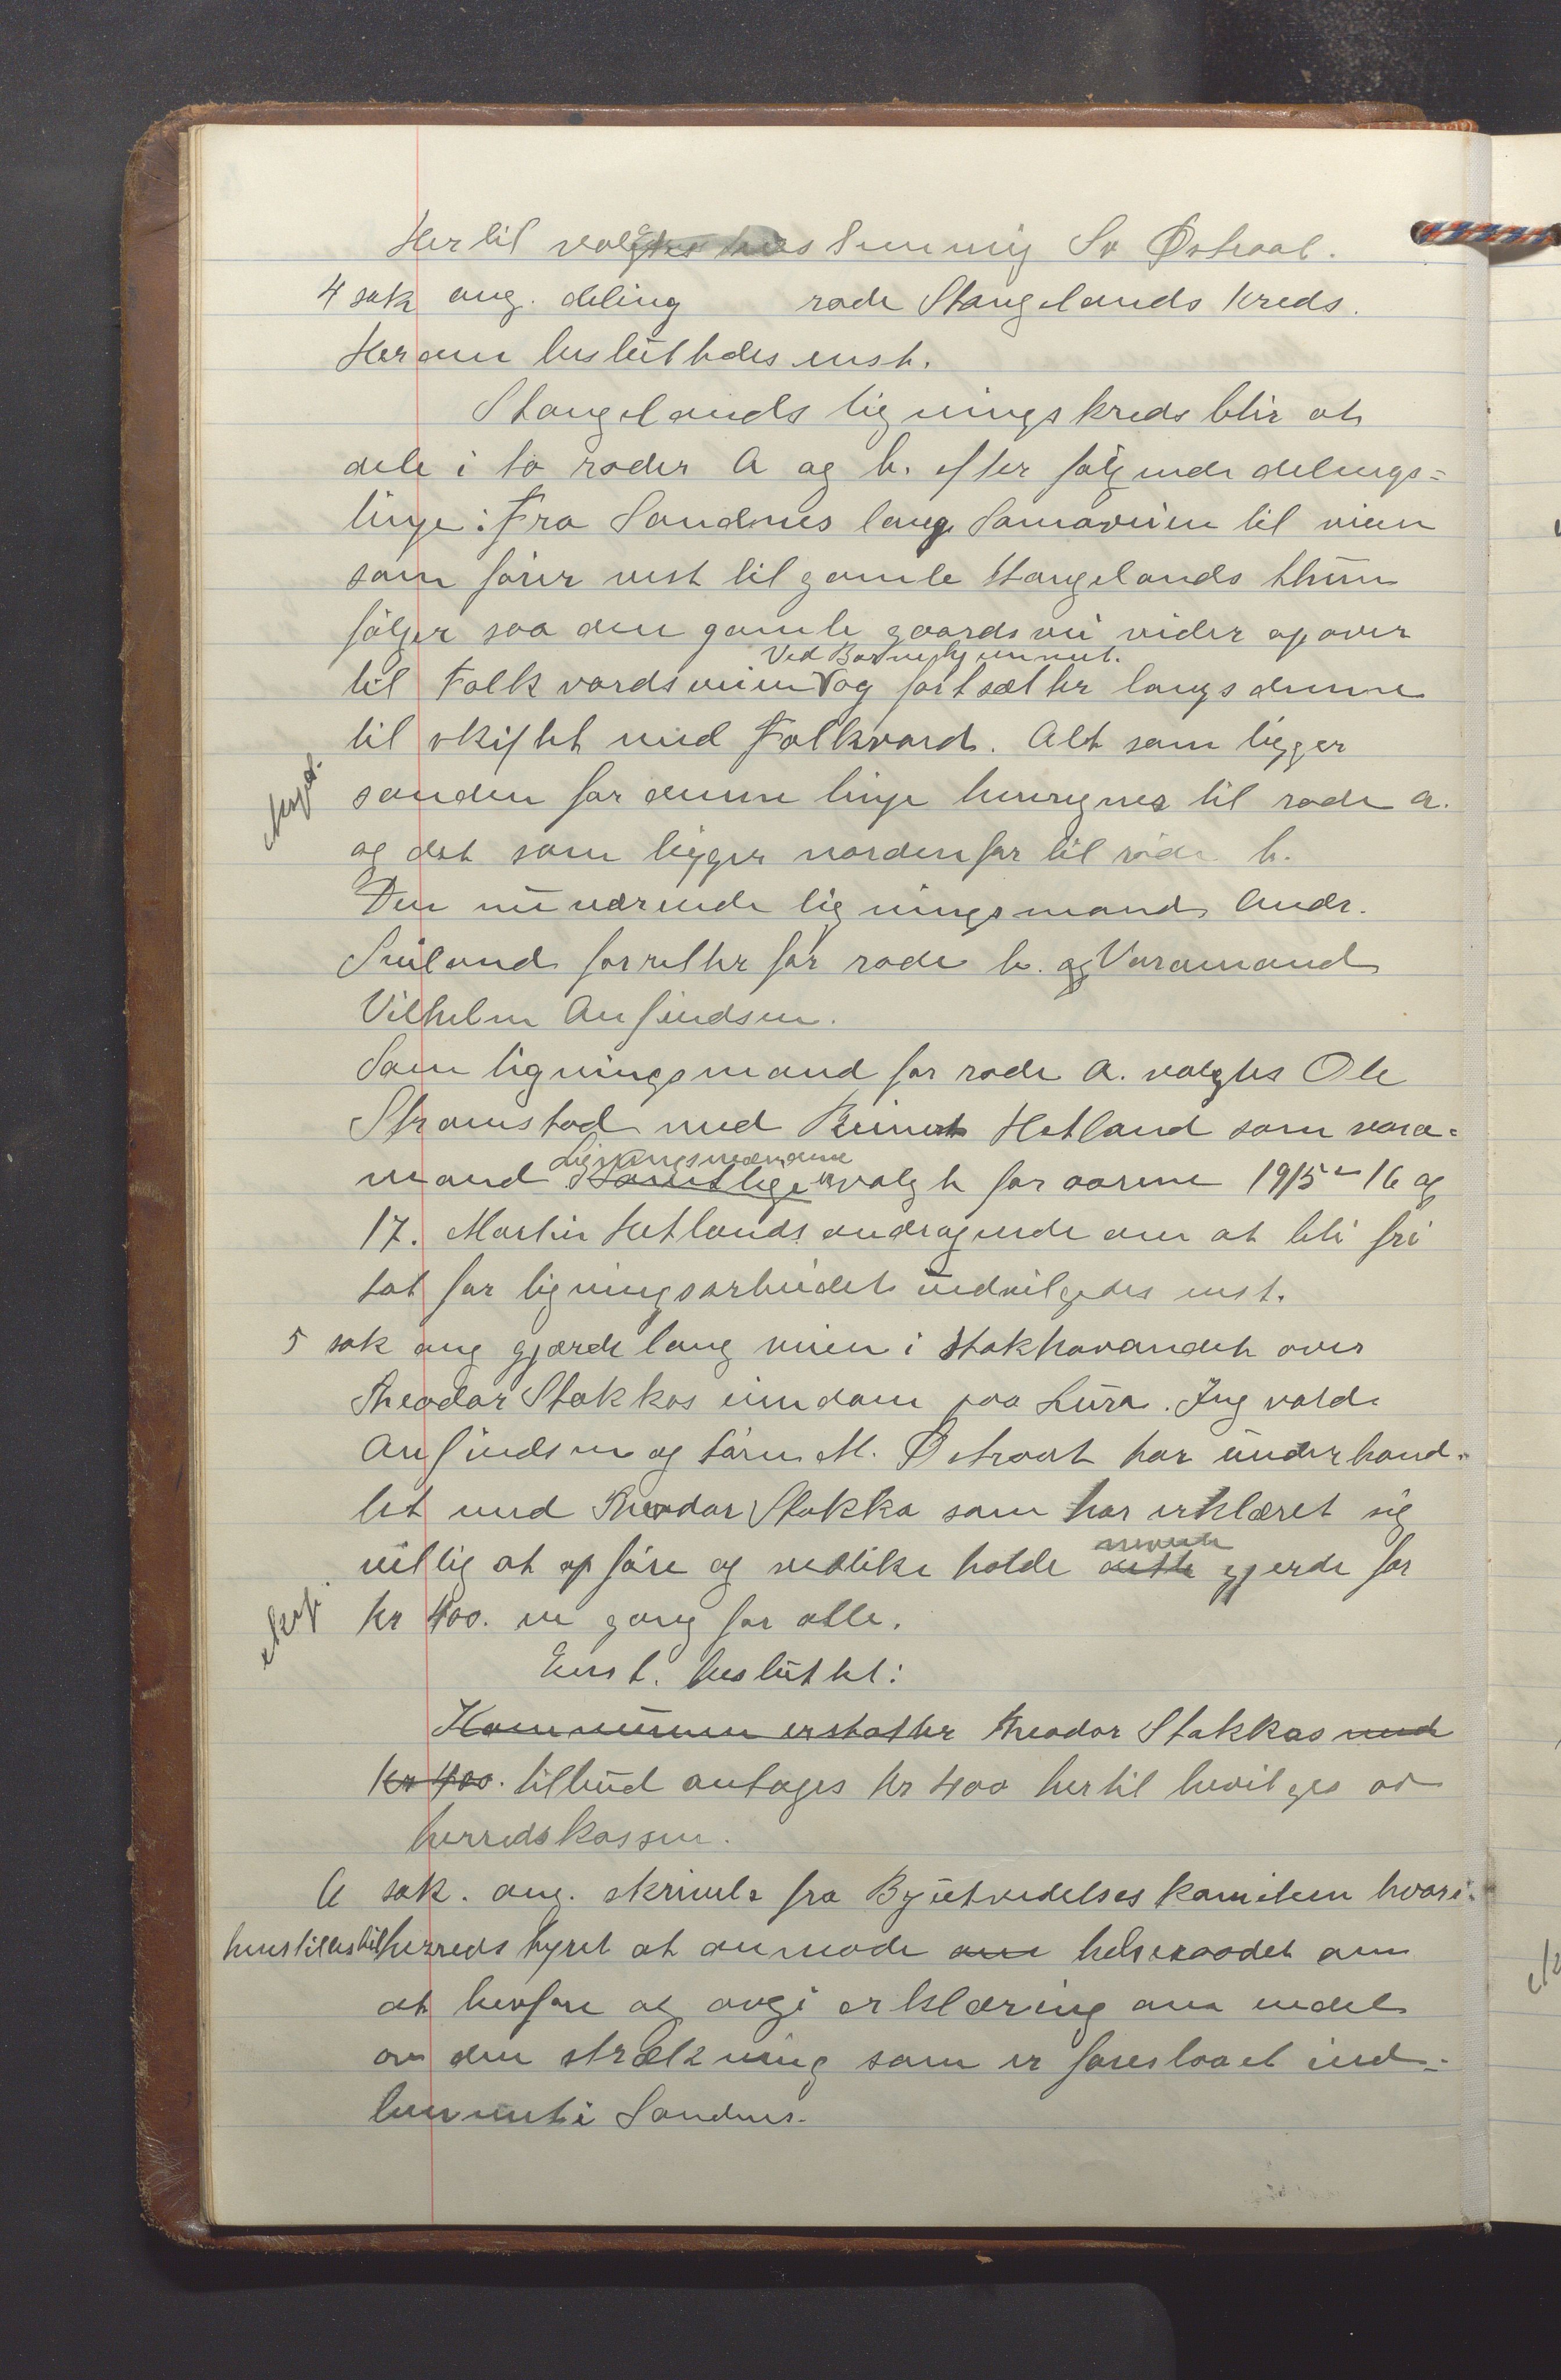 Hertil valgtes enstemmig Sv Østraat.
4 sak ang. deling rode Stangelands Kreds.
Herom besluttedes enst.
Stangelands ligningskreds blir at
dele i to roder A og b. efter følgende delings-
linje: Fra Sandnes langs Somaveien til veien
som fører vest til gamle Stangelands thun
følger saa den gamle gaardsvei vider opover
Ved Barnehjemmet.
til Folkvordsveien og fortsætter langs denne
til skiftet med Folkvord. Alt som ligger
ekspd.
sønden for denne linje henregnes til rode a.
og det som ligger nordenfor til rode b.
Den nuværende ligningsmand Andr.
Sviland forretter for rode b. og Varamand
Vilhelm Anfindsen.
Som ligningsmand for rode A. valgtes Ole
Stramstad med Reinert Hetland som vara-
Ligningsmændene
mand Samtlige er valgt for aarene 1915 - 16 og
17. Martin Hetlands andragende om at bli fri
tat for ligningsarbeidet indvilgedes enst.
5 sak ang gjærde lang veien i Stokkavandet over
Theodor Stokkas eiendom paa Lura. Ingvald
Anfindsen og Sørn M. Østraat har underhand-
let med Theodor Stokka som har erklæret sig
nevnte
villig at opføre og vedlike holde dette gjerde for
eksp.
kr 400. en gang for alle.
Enst. besluttet:
Kommunen erstatter Theodor Stokkas med
kr 400. tilbud antages kr 400 hertil bevilges av
herredskassen.
6 sak. ang. skrivelse fra Byutvidelseskomiteen hvori
henstilles til herredstyret at anmode om helseraadet om
at befare og avgi erklæring om endel
av den strækning som er foreslaaet ind-
lemmet i Sandnes.